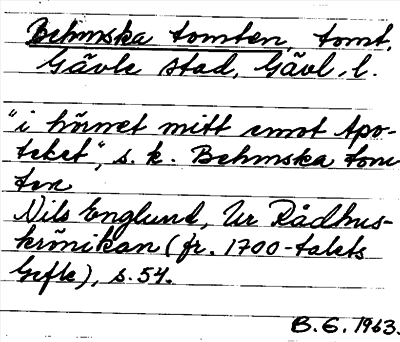 Behmska tomten, tomt,
Gävle stad, Gävl. l.
"i hörnet mitt emot Apo-
teket", s. k. Behmska tom
ten
Nils Englund, Ur Rådhus-
krönikan (fr. 1700-talets
Gefle), s. 54.
B. G. 1963.